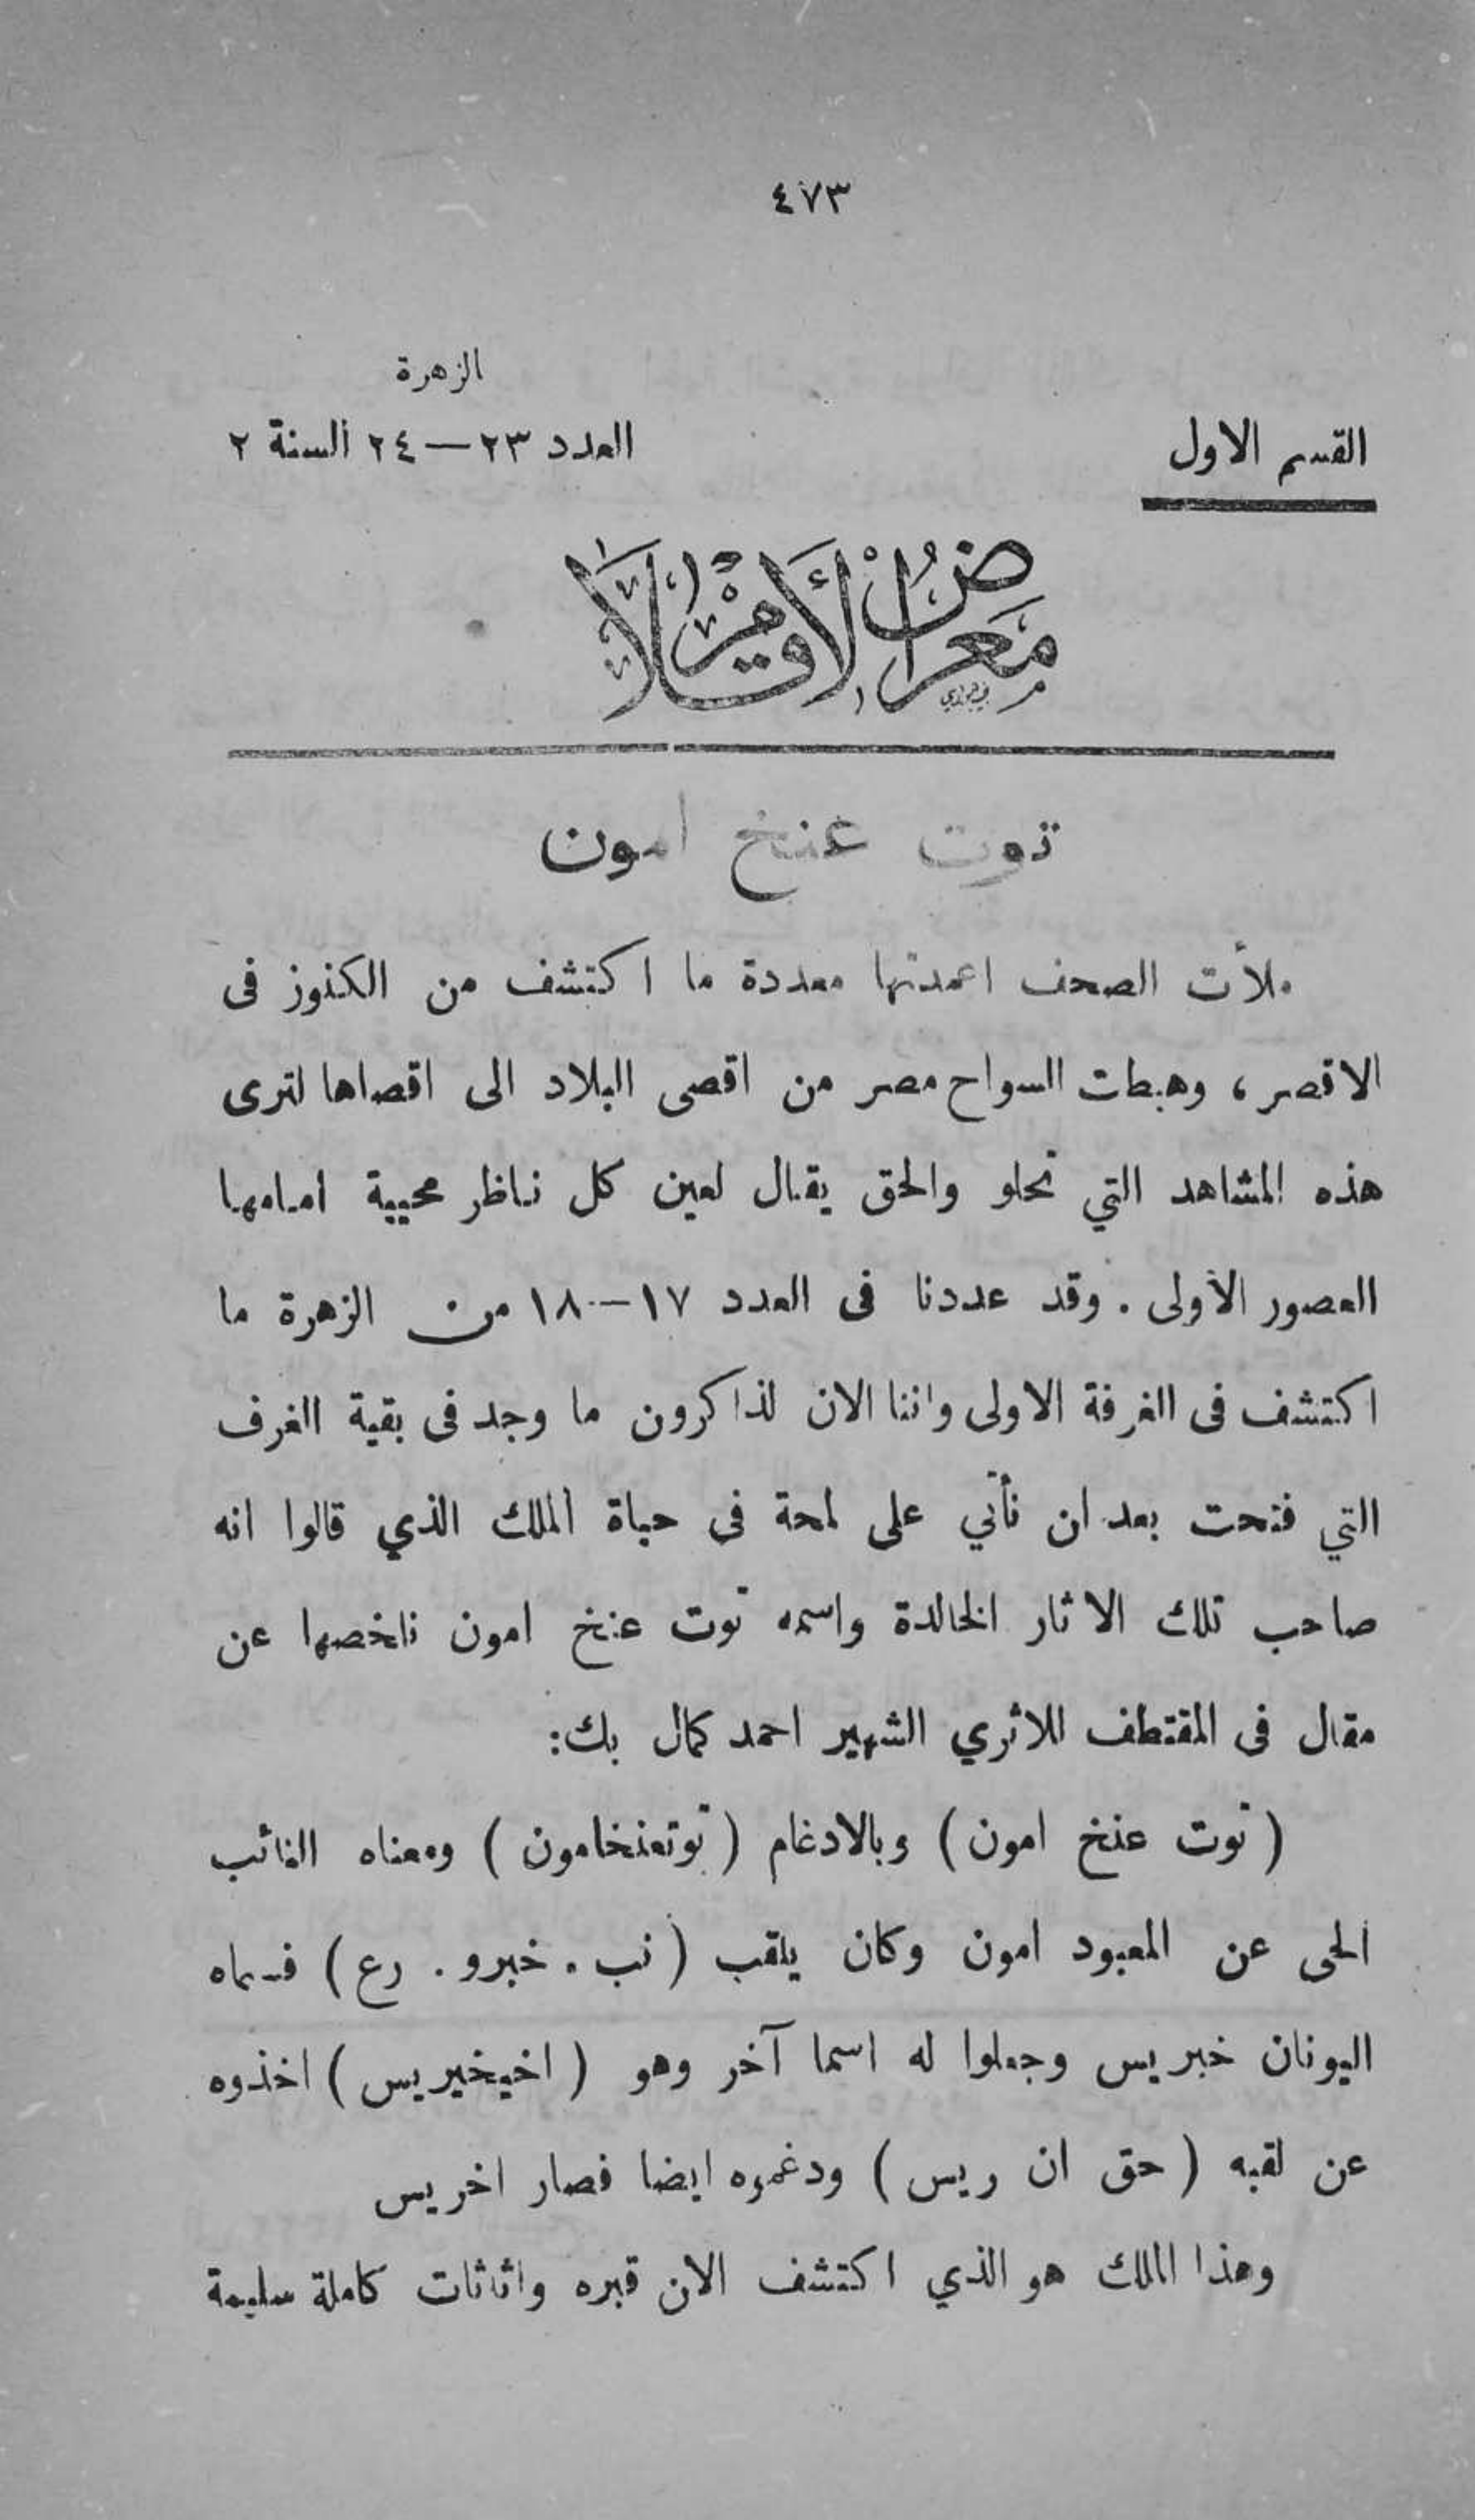 ٤٧٣
الزهرة
القسم الاول
العدد ٢٣—٢٤ السنة ٢
معرض الأقلام
توت عنخ امون
ملأت الصحف اعمدتها معددة ما اكتشف من الكنوز فى
الاقصر، وهبطت السواح مصر من اقصى البلاد الى اقصاها لترى
هذه المشاهد التي تحلو والحق يقال لعين كل ناظر محيية امامها
العصور الأولى . وقد عددنا فى العدد ١٧—١٨ من الزهرة ما
اكتشف فى الغرفة الاولى واننا الان لذاكرون ما وجد فى بقية الغرف
التي فتحت بعد ان نأتي على لمحة فى حياة الملك الذي قالوا انه
صاحب تلك الاثار الخالدة واسمه توت عنخ امون نلخصها عن
مقال فى المقتطف للاثري الشهير احمد كمال بك:
( توت عنخ امون ) وبالادغام ( توتعنخامون ) ومعناه النائب
الحى عن المعبود امون وكان يلقب ( نب . خبرو . رع ) فسماه
اليونان خبريس وجعلوا له اسما آخر وهو ( اخيخيريس ) اخذوه
عن لقبه ( حق ان ريس ) ودغموه ايضا فصار اخريس
وهذا الملك هو الذي اكتشف الان قبره واثاثات كاملة سليمة